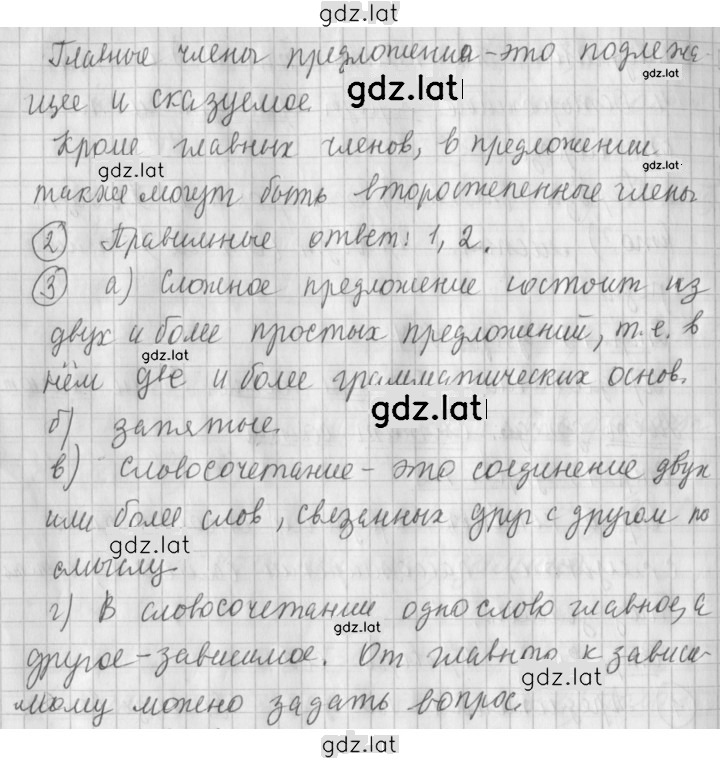 gdz.lat
Главные члены предложения - это подлежа-
gdz.lat
щее и сказуемое.
gdz.lat
Кроме главных членов, в предложении
gdz.lat
gdz.lat
также могут быть второстепенные члены
② Правильные ответ: 1, 2.
③ а) Сложное предложение состоит из
двух и более простых предложений, т. е. в
gdz.lat
нём две и более грамматических основ.
gdz.lat
б) запятые.
в) Словосочетание - это соединение двух
или более слов, связанных друг с другом по
gdz.lat
смыслу
г) В словосочетании одно слово главное, а
gdz.lat
другое - зависимое. От главного к зависи-
gdz.lat
мому можно задать вопрос.
gdz.lat